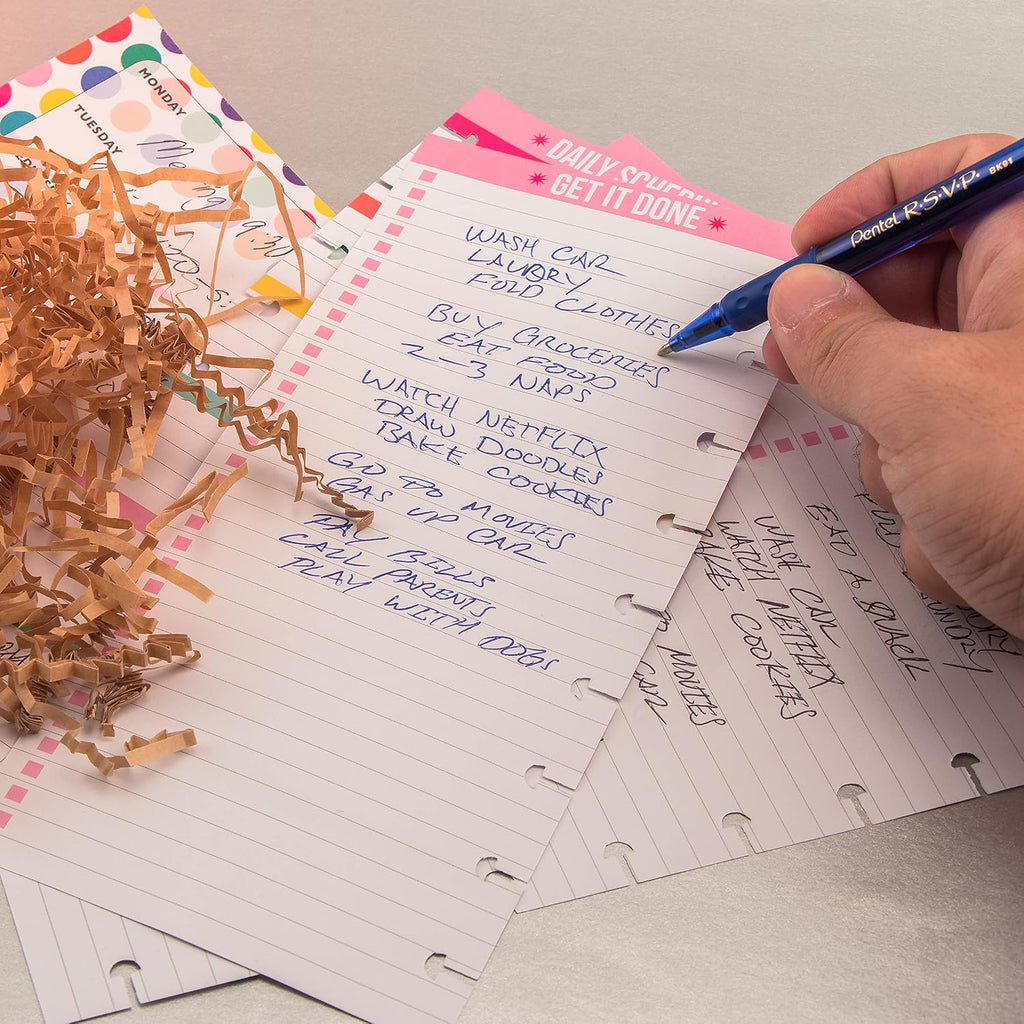 MONDAY
TUESDAY
Me
DAILY
GET IT DONE
WASH CAR
LAUNDRY
FOLD CLOTHES
BUY GROCERIES
EAT FOOD
2-3 NAPS
WATCH NETFLIX
DRAW DOODLES
BAKE COOKIES
GO TO MOVIES
GAS UP CAR
PAY BELLS
CALL PARENTS
PLAY WITH DOGS
Pentel R.S.V.P. BK91
EAT A SNACK
WASH CAR
WATCH NETFLIX
COOKIES
MOVIES
CAR